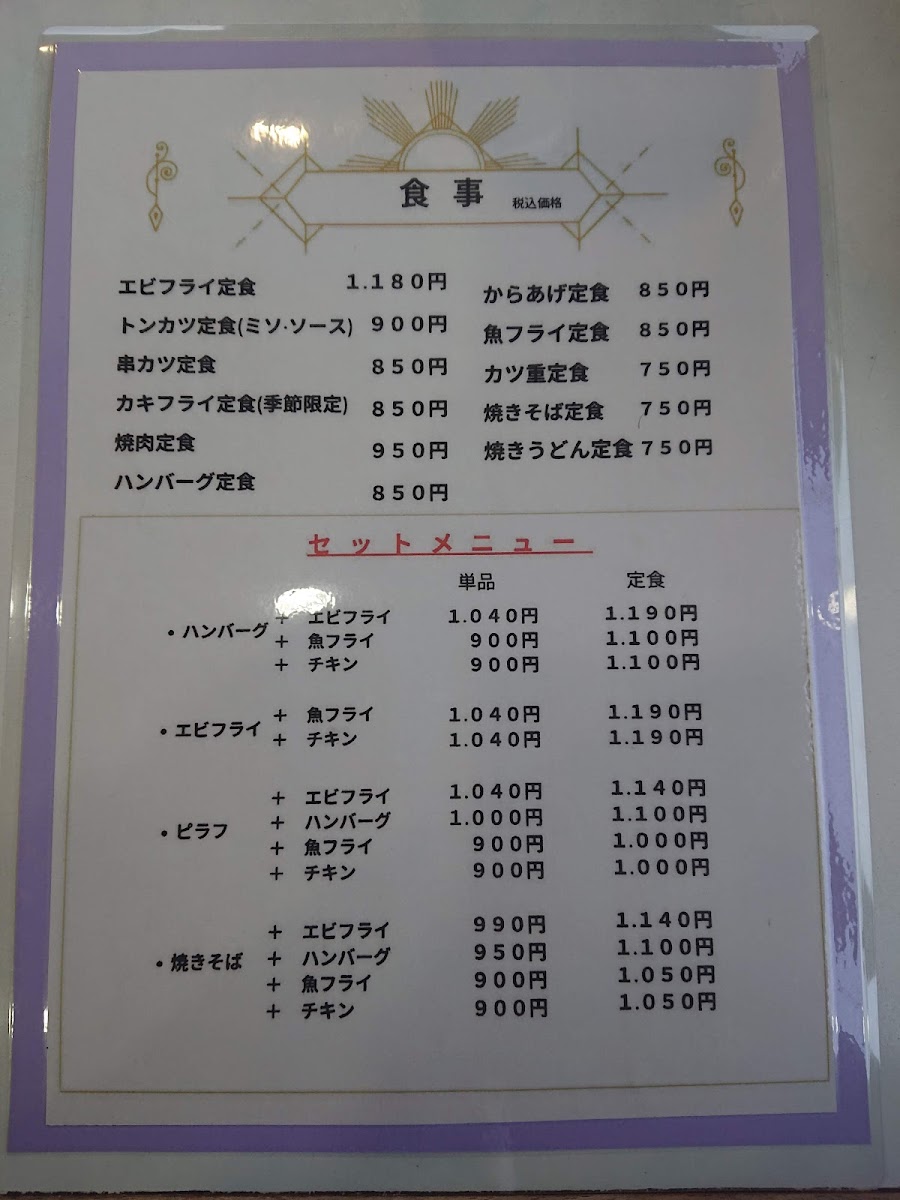 食事 税込価格
エビフライ定食 1.180円
トンカツ定食(ミソ·ソース) 900円
串カツ定食 850円
カキフライ定食(季節限定) 850円
焼肉定食 950円
ハンバーグ定食 850円
からあげ定食 850円
魚フライ定食 850円
カツ重定食 750円
焼きそば定食 750円
焼きうどん定食 750円
セットメニュー
単品 定食
・ハンバーグ + エビフライ 1.040円 1.190円
+ 魚フライ 900円 1.100円
+ チキン 900円 1.100円
・エビフライ + 魚フライ 1.040円 1.190円
+ チキン 1.040円 1.190円
・ピラフ + エビフライ 1.040円 1.140円
+ ハンバーグ 1.000円 1.100円
+ 魚フライ 900円 1.000円
+ チキン 900円 1.000円
・焼きそば + エビフライ 990円 1.140円
+ ハンバーグ 950円 1.100円
+ 魚フライ 900円 1.050円
+ チキン 900円 1.050円